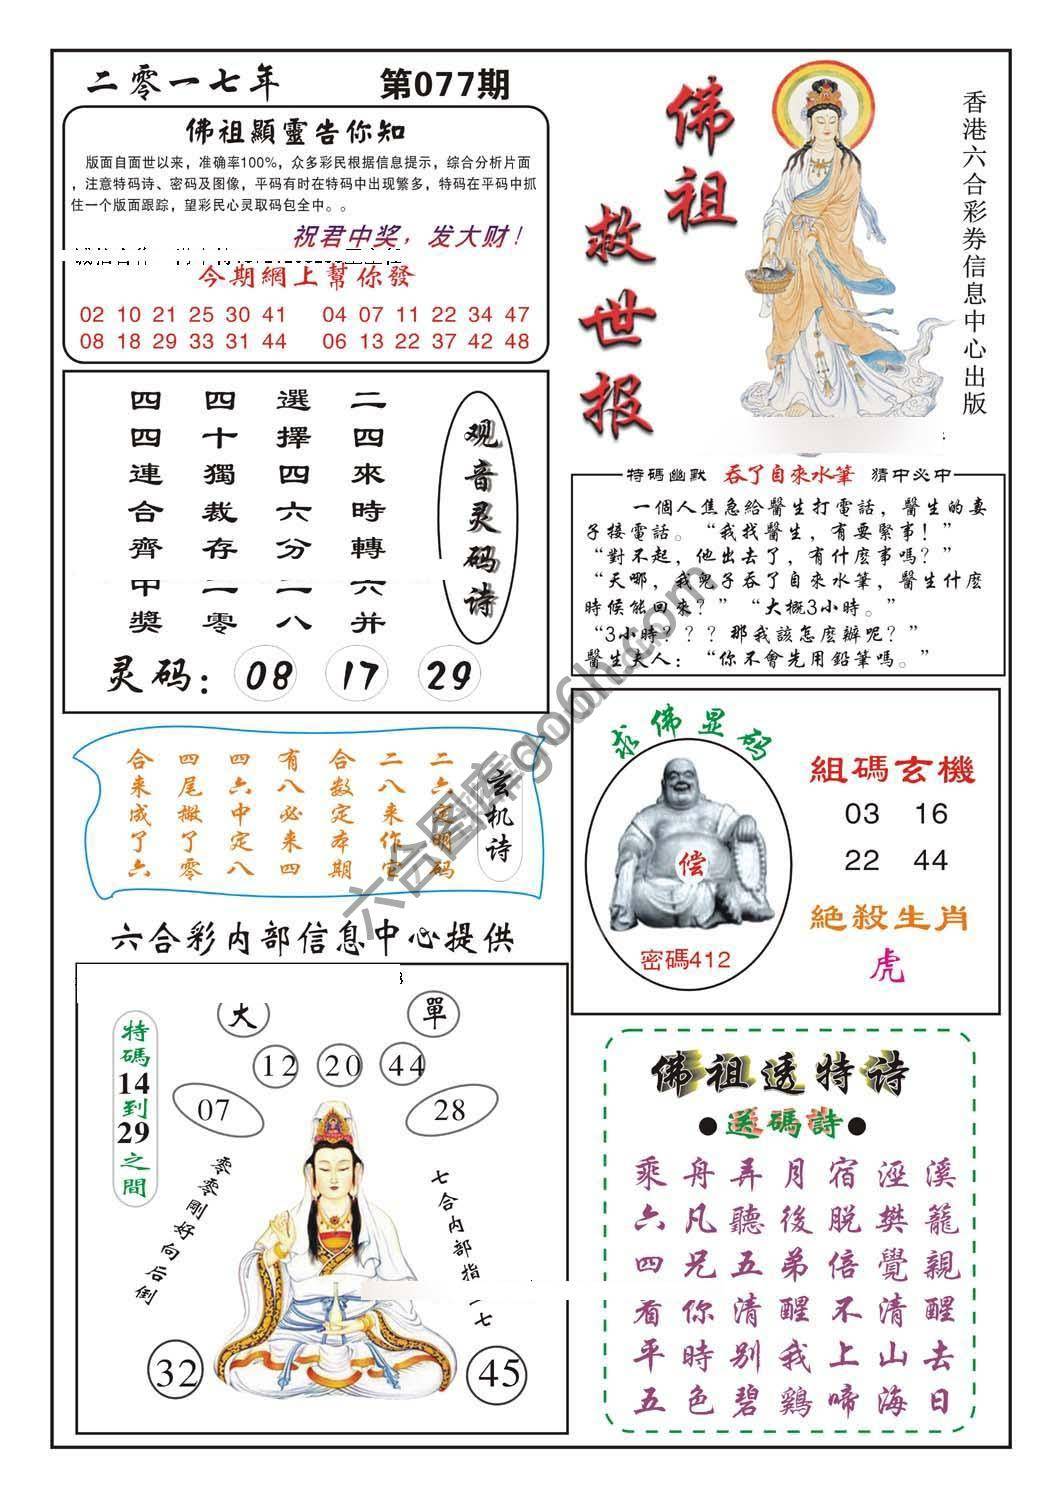 二零一七年 第077期
佛祖顯靈告你知
版面自面世以来，准确率100%，众多彩民根据信息提示，综合分析片面
，注意特码诗、密码及图像，平码有时在特码中出现繁多，特码在平码中抓
住一个版面跟踪，望彩民心灵取码包全中。。
祝君中奖，发大财！
今期網上幫你發
02 10 21 25 30 41 04 07 11 22 34 47
08 18 29 33 31 44 06 13 22 37 42 48
佛祖
救世报
香港六合彩券信息中心出版
观音灵码诗
二四來時轉六并
選擇四六分二八
四十獨裁存一零
四四連合齊中獎
灵码：08 17 29
特碼幽默 吞了自來水筆 猜中必中
一個人焦急給醫生打電話，醫生的妻
子接電話。“我找醫生，有要緊事！”
“對不起，他出去了，有什麽事嗎？”
“天哪，我兒子吞了自來水筆，醫生什麽
時候能回來？”“大概3小時。”
“3小時？？？那我該怎麽辦呢？”
醫生夫人：“你不會先用鉛筆嗎。”
玄机诗
二六定明码
二八来作官
合数定本期
有八必来四
四六中定八
四尾撒了零
合来成了六
求佛显码
偿
密碼412
組碼玄機
03 16
22 44
絕殺生肖
虎
六合彩内部信息中心提供
大 單
12 20 44
07 28
特碼14到29之間
零零剛好向后倒
七合内部指 七
32 45
佛祖透特诗
●送碼詩●
乘舟弄月宿涇溪
六凡聽後脱樊籠
四兄五弟倍覺親
看你清醒不清醒
平時别我上山去
五色碧鷄啼海日
六合图库go6h.com